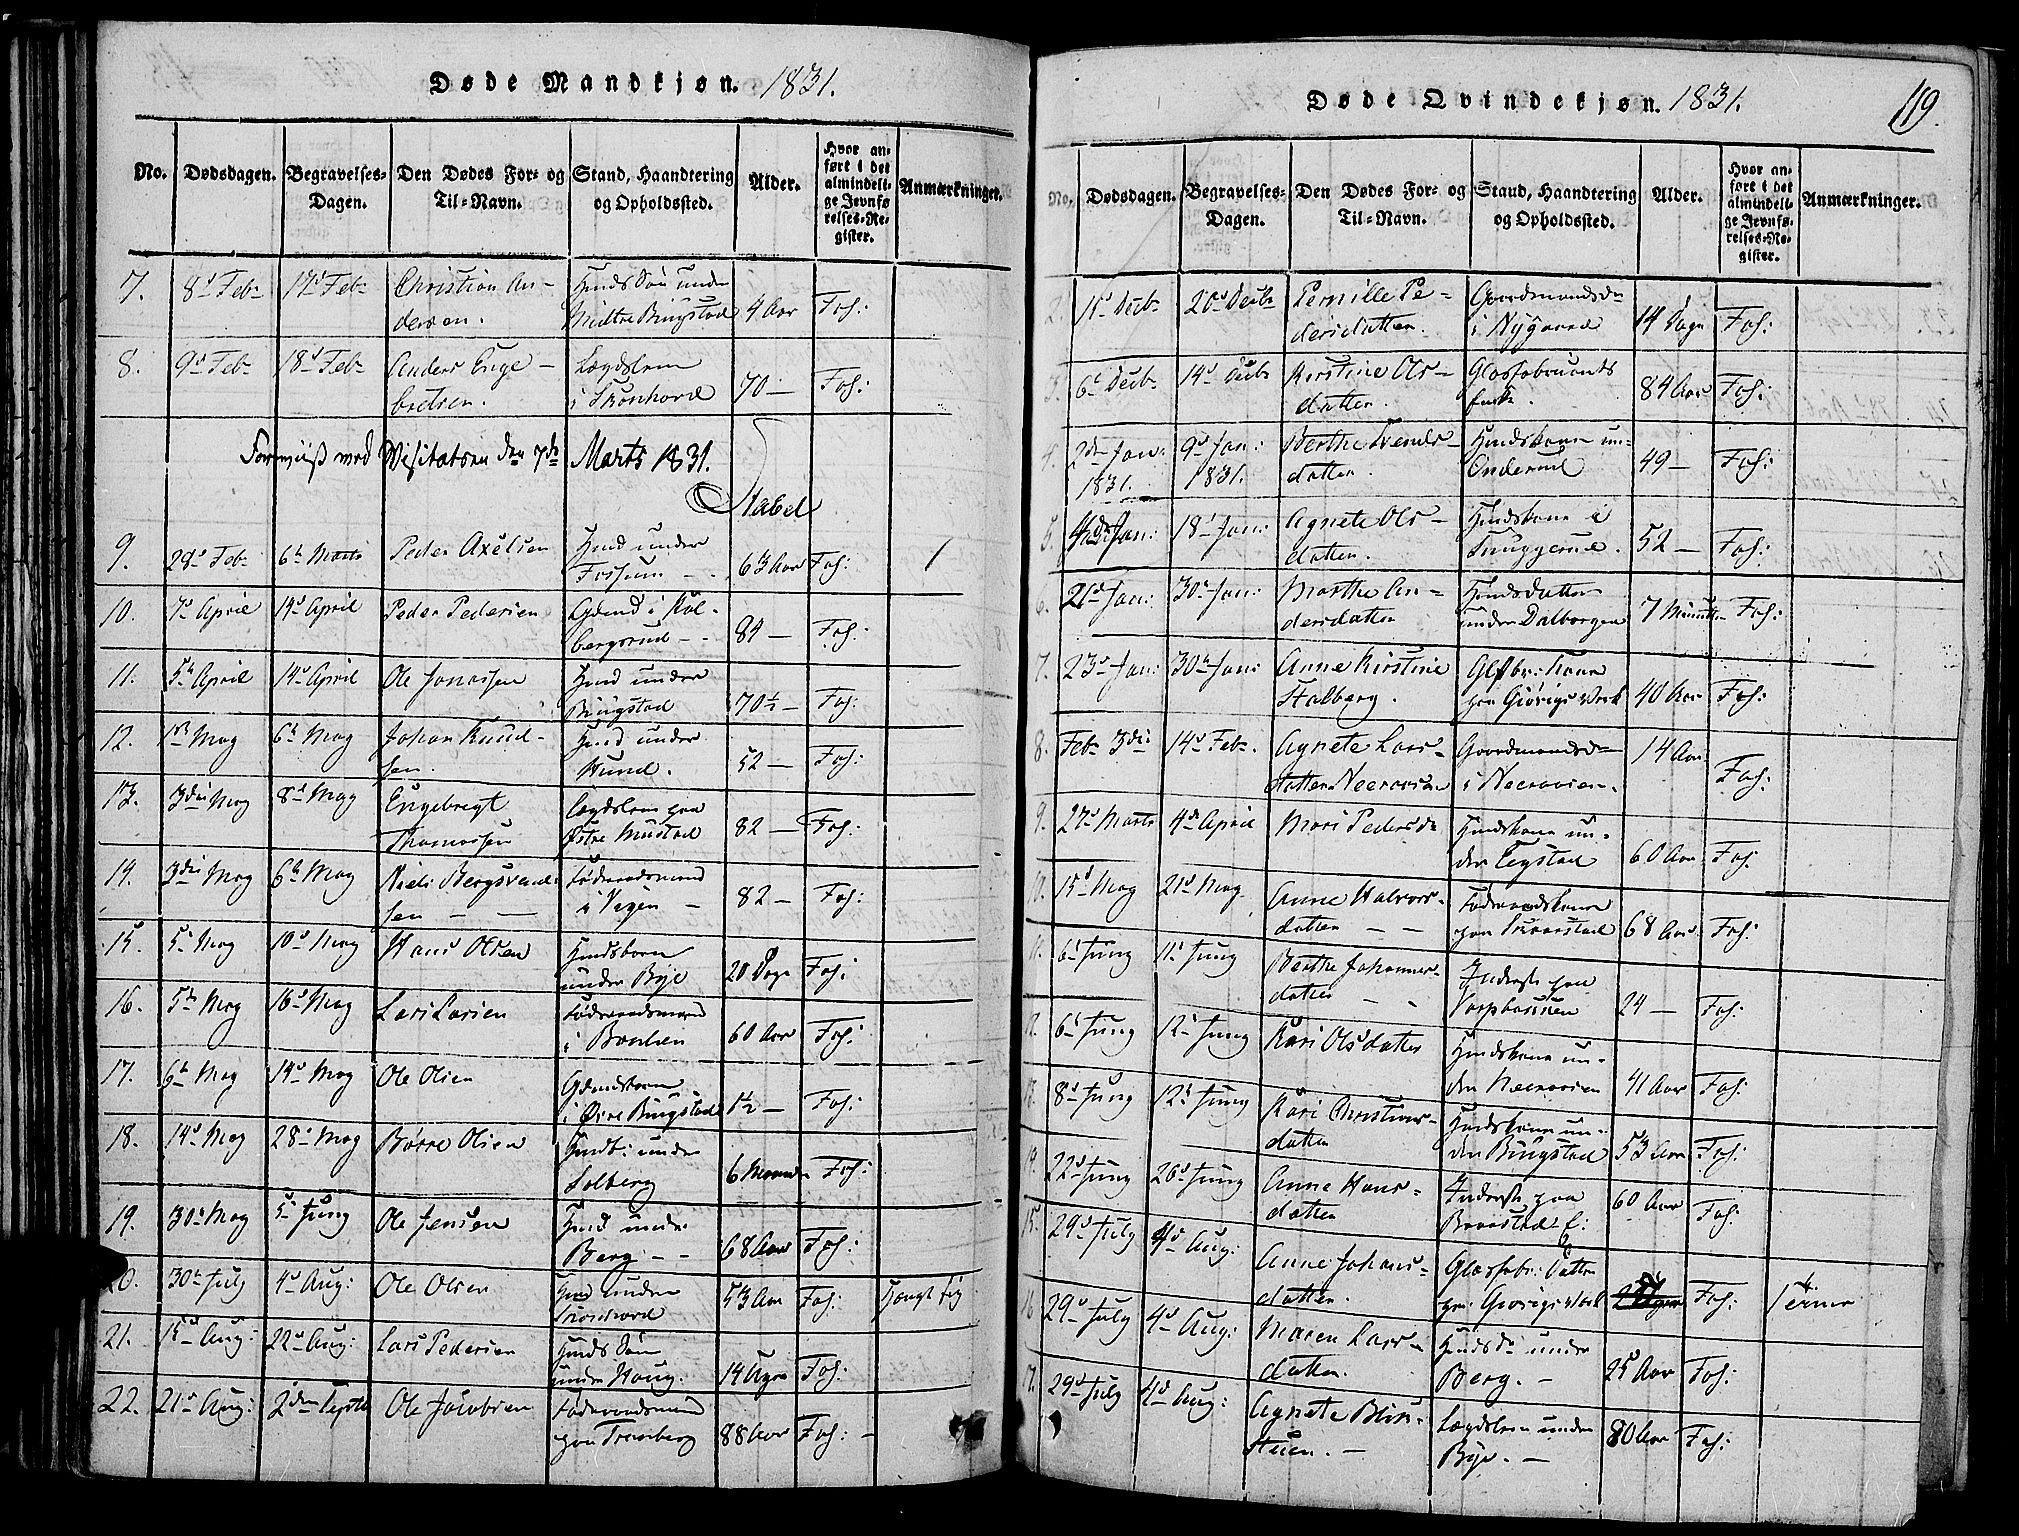 Døde Mandkjøn. 1831.
No. Dødsdagen. Begravelses-Dagen. Den Dødes For- og Til-Navn. Stand, Haandtering og Opholdssted. Alder. Hvor anført i det almindelige Jevnførelses-Register. Anmærkninger.
7. 8d Febr 14d Febr Christian An-
dersen. Huusds Søn under Midtre Bingstad 4 Aar Foh:
8. 9d Febr 18d Febr Anders Enge-
bretsen. Lægdslem i 70 — Foh:
med Visitatsen den 7de Marts 1831.
Stabel
9. 28d Feb 6te Marts Peder Axelsen
Hmd under Fossum 63 Aar Foh:
10. 7d April 14d April Peder Pedersen
Gdmd i Kol-
bergsrud 84 — Foh:
11. 5te April 14d April Ole Jonassen
Hmd under Bingstad 70½ — Foh:
12. 1ste May 6te May Johan Knud-
sen. Hmd under Hund. 52 — Foh:
13. 3die May 8de May Engebregt
Thomassen Lægdslem paa Østre Mustad 82 — Foh:
14. 3die May 6te May Niels Bergsvend-
sen Föderaadsmand 82 — Foh:
15. 5te May 10d May Hans Olsen
Huusdsbarn under Bye 20 Dage Foh:
16. 5te May 16d May Lars Larsen
Föderaadsmand i 60 Aar Foh:
17. 6te May 14d May Ole Olsen
Gdmdsbarn i Øvre Bingstad 1½ — Foh:
18. 14d May 28d May Børre Olsen
under Solberg 6 Foh:
19. 30d May 5te Juny Ole Jensen
Hmd under Berg 68 Aar Foh:
20. 30te July 4d Aug: Ole Olsen
Hmd under 53 Aar Foh: hængt sig
21. 15d Aug: 22d Aug: Lars Pedersen
Hmds Søn under Haug. 14 Foh:
22. 21d Aug: 2den Septb Ole Jacobsen
Föderaadsmand paa 88 Aar Foh:
Døde Qvindekjøn. 1831.
119.
No. Dødsdagen. Begravelses-Dagen. Den Dødes For- og Til-Navn. Stand, Haandtering og Opholdssted. Alder. Hvor anført i det almindelige Jevnførelses-Register. Anmærkninger.
2. 15d Decbr 20d Decbr Pernille Pe-
dersdatter. Gaardmandsdr i Nygaard 14 Dage Foh:
3. 6te Decbr 14d Decbr Kirstine Ols-
datter. 84 Aar Foh:
4. 2den Jan: 1831. 9d Jan: 1831. Berthe Svends-
datter. Huusdskone un-
49 — Foh:
5. Jan: 18d Jan: Agnete Ols-
datter. Huusdskone i 52 — Foh:
6. 21d Jan: 30te Jan: Marthe An-
dersdatter Hmdsdatter under Dalborgen 7 Foh:
7. 23d Jan: 30te Jan: Anne Kirstine
Stalberg. Kone paa Giøvigs Værk 40 Aar Foh:
8. Feb 3die 14d Feb. Agnete Lars-
datter Neeravsen Gaardmandsdr i Neeravsen. 14 Aar Foh:
9. 27d Marts 4de April Mari Pedersdr
Hmdskone un-
der Tegstad 60 Aar Foh:
10. 15d May 21d May Anne Halvors-
datter Föderaadskone paa 68 Aar Foh:
11. 6te Juny 11d Juny Berthe Johannes-
datter Inderst paa 24 — Foh:
12. 6te Juny 12d Juny Kari Olsdatter
Hmdskone un-
der Neeravsen 41 Aar Foh:
13. 8d Juny 12d Juny Kari Christians-
datter Hmdskone un-
der Bingstad 53 Aar Foh:
14. 22d Juny 26d Juny Anne Hans-
datter Inderst paa 60 Aar Foh:
15. 29d July 4d Aug: Anne Johans-
datter. Glassabr: Datter paa Giøvigs Værk Foh:
16. 29d July 4d Aug: Maren Lars-
datter. Hmds Dr under Berg. — 25 Aar Foh:
17. 29d July 4d Aug: Agnete
Lægdslem under Bye. — 80 Aar Foh: